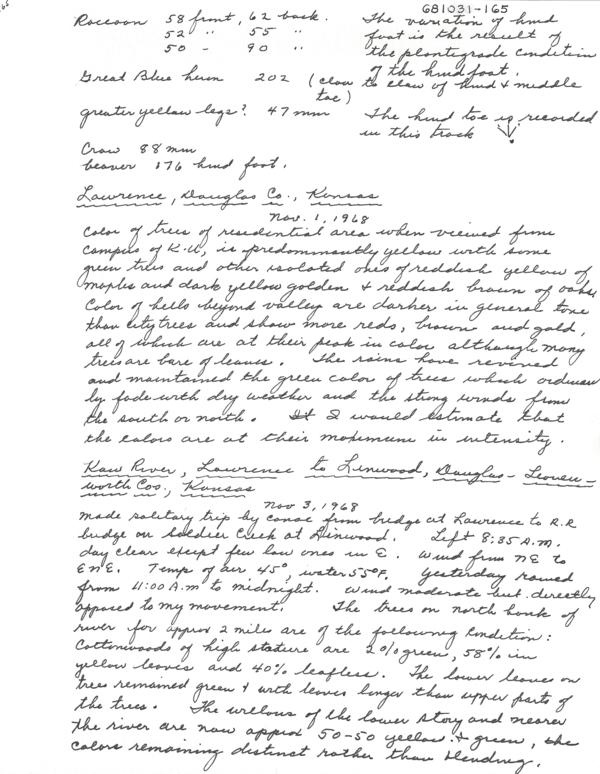 681031-165
Raccoon 58 front, 62 back. The variation of hind
52 " 55 " foot is the result of
50 - 90 " the plantigrade condition
of the hind foot.
Great Blue heron 202 (claw to claw of hind & middle
toe)
greater yellow legs? 47 mm The hind toe is recorded
in this track
Crow 88 mm
beaver 176 hind foot.
Lawrence, Douglas Co., Kansas
Nov. 1, 1968
Color of trees of residential area when viewed from
campus of K.U, is predominantly yellow with some
green trees and other isolated ones of reddish yellow of
maples and dark yellow golden & reddish brown of oaks.
Color of hills beyond valley are darker in general tone
than city trees and show more reds, brown and gold,
all of which are at their peak in color although many
trees are bare of leaves. The rains have revived
and maintained the green color of trees which ordinari
ly fade with dry weather and the strong winds from
the south or north. It I would estimate that
the colors are at their maximum in intensity.
Kaw River, Lawrence to Linwood, Douglas - Leaven-
worth Cos., Kansas
Nov 3, 1968
Made solitary trip by canoe from bridge at Lawrence to R.R
bridge on Soldier Creek at Linwood. Left 8:35 A.M.
day clear except few low ones in E. Wind from NE to
ENE. Temp of air 45°, water 55°F. Yesterday rained
from 11:00 A.M to midnight. Wind moderate but directly
opposed to my movement. The trees on north bank of
river for approx 2 miles are of the following condition:
Cottonwoods of high stature are 2% green, 58% in
yellow leaves and 40% leafless. The lower leaves on
trees remained green & with leaves longer than upper parts of
the trees. The willows of the lower story and nearer
the river are now approx 50-50 yellow & green, the
colors remaining distinct rather than blending.